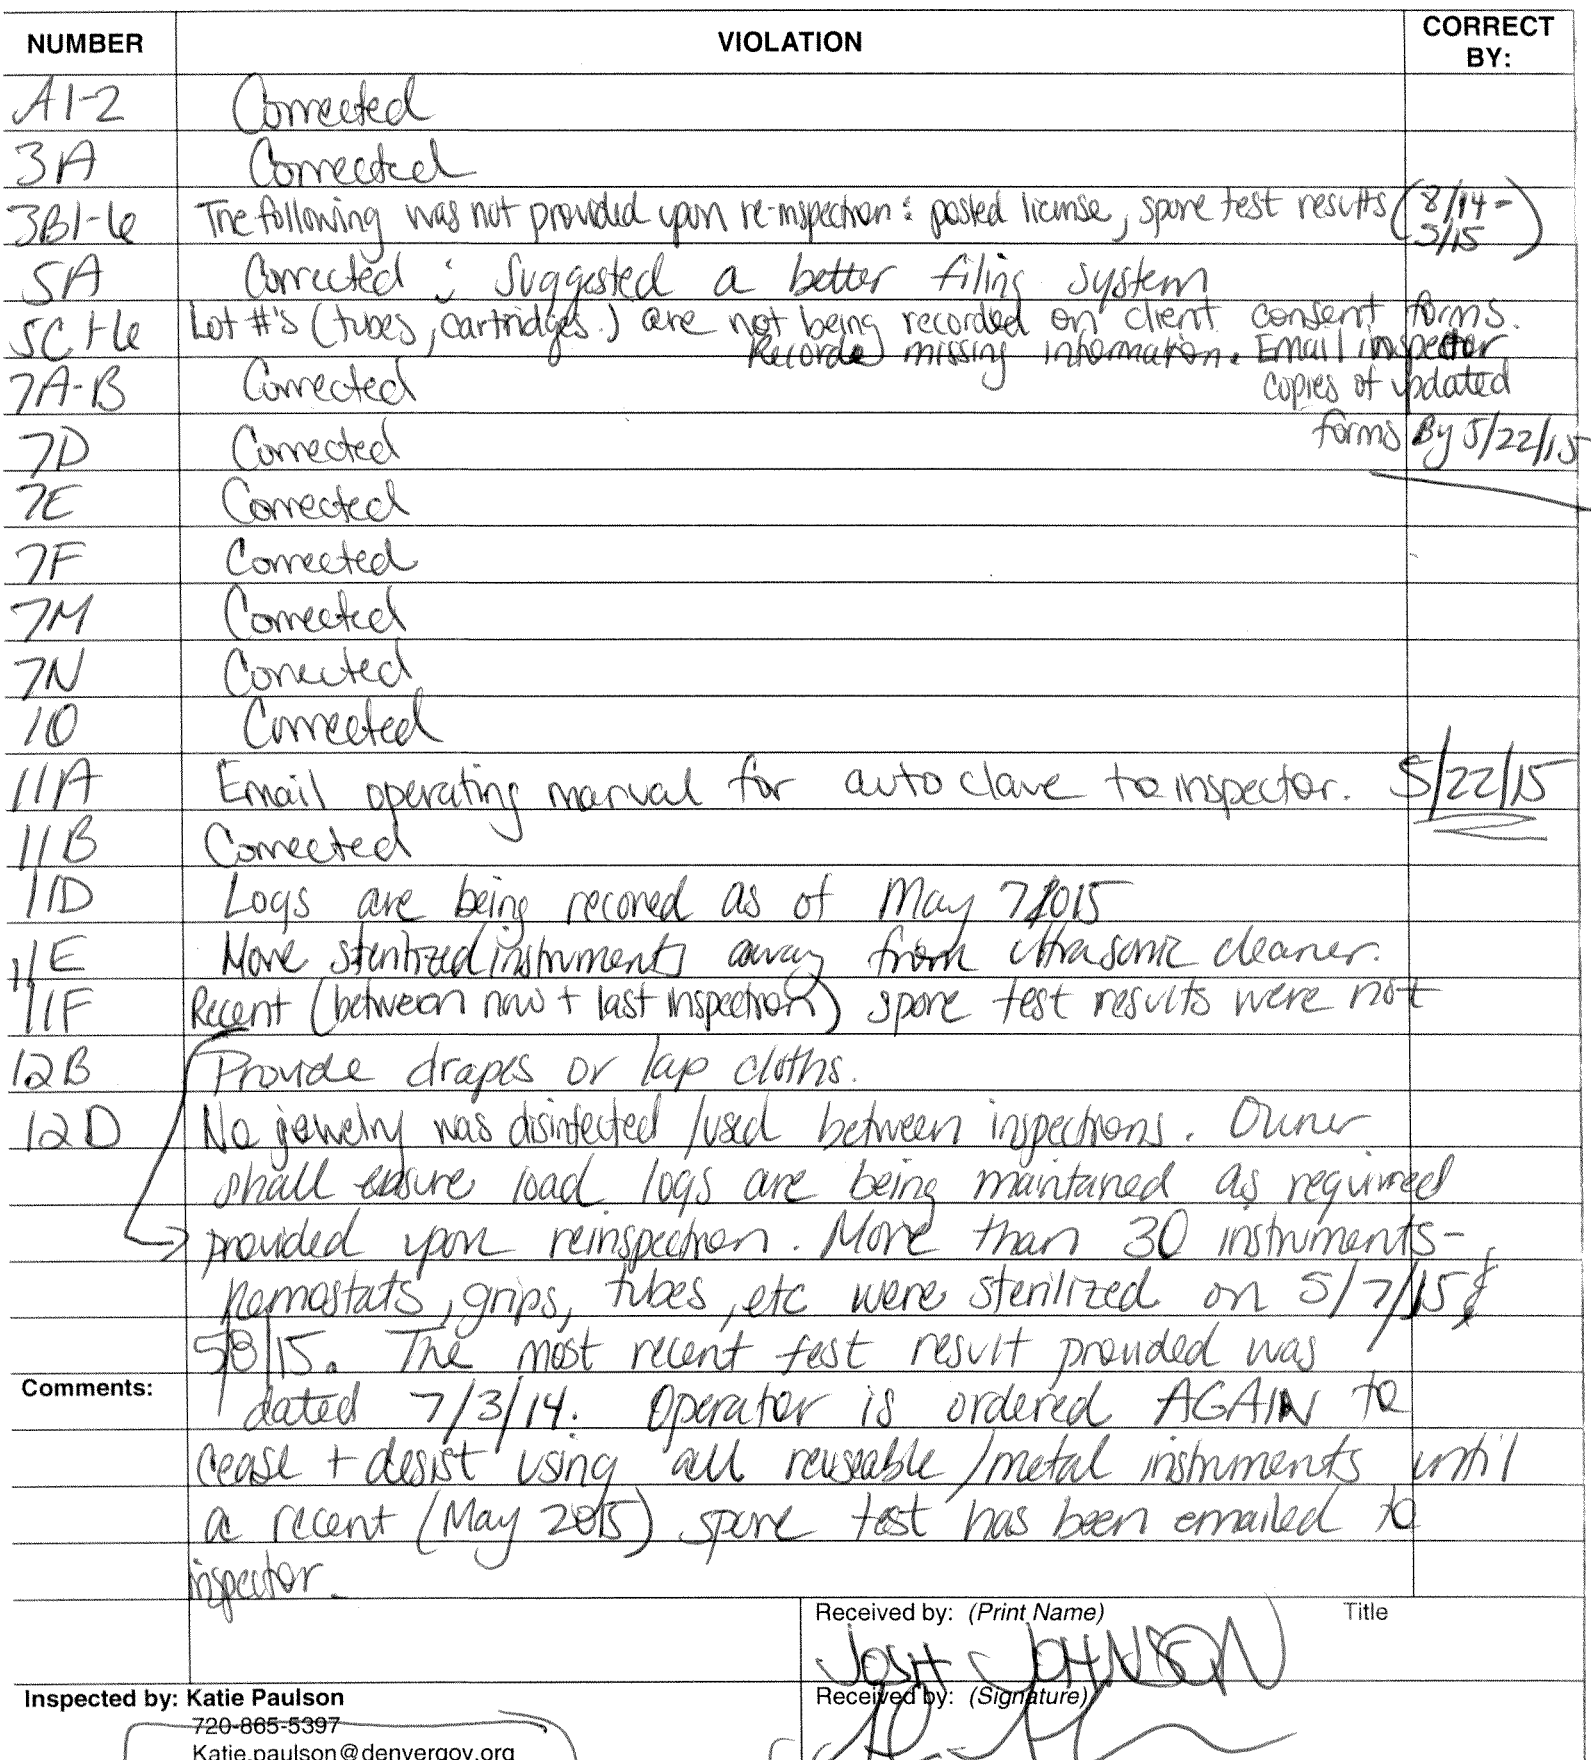 NUMBER VIOLATION CORRECT BY:
A1-2 Corrected
3A Corrected
3B1-6 The following was not provided upon re-inspection: posted license, spore test results (8/14 - 5/15)
5A Corrected; suggested a better filing system
5C1-6 Lot #'s (tubes, cartridges.) are not being recorded on client consent forms.
Recorde missing information. Email inspector
7A-B Corrected copies of updated
forms By 5/22/15
7D Corrected
7E Corrected
7F Corrected
7M Corrected
7N Corrected
10 Corrected
11A Email operating manual for autoclave to inspector. 5/22/15
11B Corrected
11D Logs are being recored as of May 7 2015
11E Move sterilized instruments away from ultrasonic cleaner.
11F Recent (between now + last inspection) spore test results were not
12B Provide drapes or lap cloths.
12D No jewelry was disinfected/used between inspections. Owner
shall ensure load logs are being maintained as required
provided upon reinspection. More than 30 instruments-
hemostats, grips, tubes, etc were sterilized on 5/7/15 &
5/8/15. The most recent test result provided was
Comments: dated 7/3/14. Operator is ordered AGAIN to
cease + desist using all reuseable/metal instruments until
a recent (May 2015) spore test has been emailed to
inspector.
Received by: (Print Name) Title
JOSH JOHNSON
Inspected by: Katie Paulson Received by: (Signature)
720-865-5397
Katie.paulson@denvergov.org